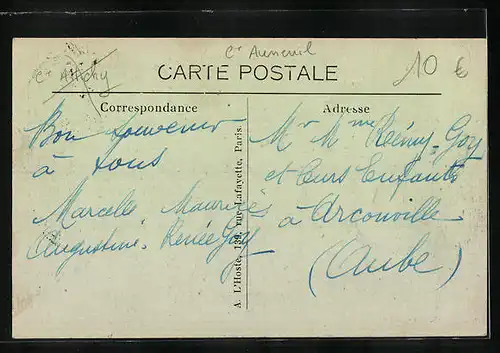 Cn Auneuil
Cn Attichy
10 €
CARTE POSTALE
Correspondance
Adresse
Bon souvenir
à tous
Marcelle Maurice
Augustine. Renée Goy
A. L'Hoste, 139, rue Lafayette, Paris.
Mr Mme Rémy-Goy
et leurs Enfants
à Arconville
(Aube)